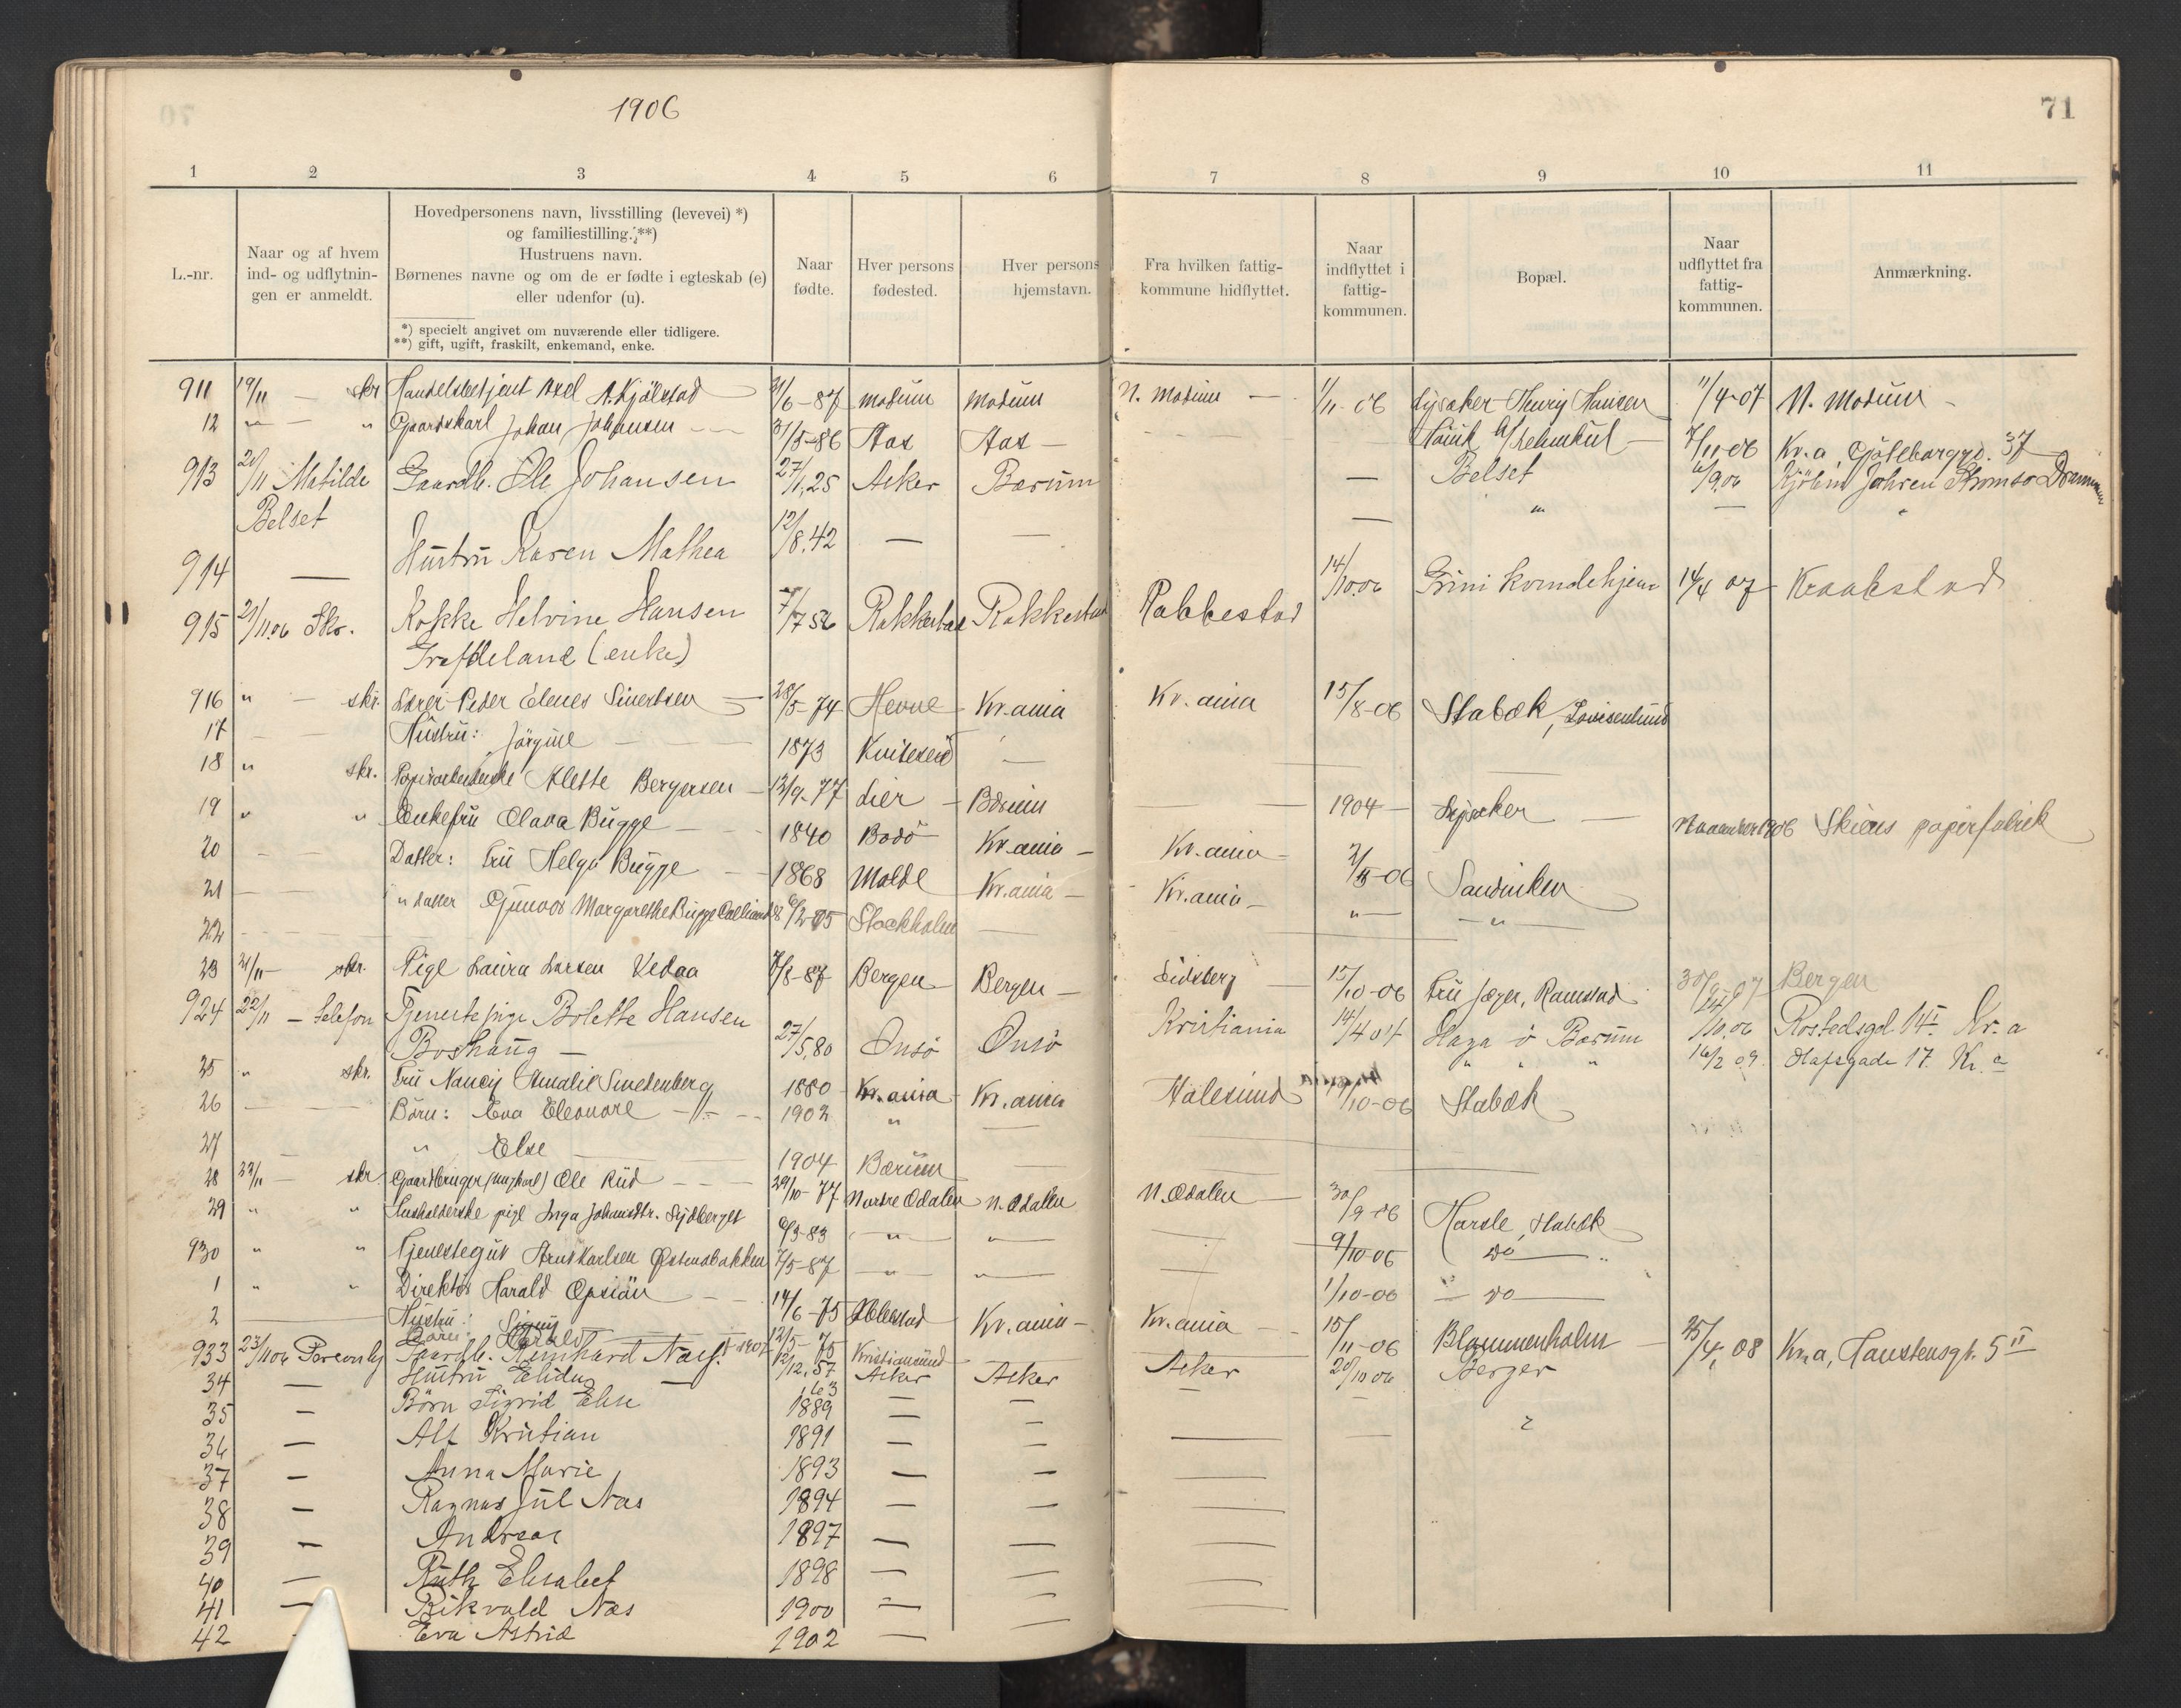 1906
71
1 2 3 4 5 6 7 8 9 10 11
L.-nr.
Naar og af hvem
ind- og udflytnin-
gen er anmeldt.
Hovedpersonens navn, livsstilling (levevei) *)
og familiestilling. **)
Hustruens navn.
Børnenes navne og om de er fødte i egteskab (e)
eller udenfor (u).
*) specielt angivet om nuværende eller tidligere.
**) gift, ugift, fraskilt, enkemand, enke.
Naar
fødte.
Hver persons
fødested.
Hver persons
hjemstavn.
Fra hvilken fattig-
kommune hidflyttet.
Naar
indflyttet i
fattig-
kommunen.
Bopæl.
Naar
udflyttet fra
fattig-
kommunen.
Anmærkning.
911 19/11 — skr Handelsbetjent Axel A. Kjölstad 21/6-87 Modum Modum N. Modum — 1/11-06 Lysaker Thury Hansen 11/4-07 N. Modum —
12 " — " Gaardskarl Johan Johansen — 31/5-86 Aas Aas — 7/11-06 Kr.a, Gjøteborggd. 37
913 20/11 Matilde Gaardb. Ole Johansen 27/1.25 Asker Bærum — Belset Johren Strømsø Drammen
Belset
914 — Hustru Karen Mathea 12/8.42 — — — "
915 21/11.06 Skr. Kokke Helvine Hansen 7/7 52 Rakkestad Rakkestad Rakkestad 14/10.06 Grini kvindehjem 14/4 07 Kraakstad
(enke)
916 " — skr. Lærer Peder Elenes Sivertsen — 28/5-74 Hevne Kr.ania Kr.ania 15/8-06 Stabæk, Lovisenlund
17 — — Hustru: Jørgine — 1873 Kviteseid —
18 " skr. Papirarbeiderske Alette Bergersen — 13/9-77 Lier — Bærum — 1904 — Lysaker — November 1906 Skiens papirfabrik
19 " " Enkefru Olava Bugge — 1840 Bodø Kr.ania — Kr.ania — Sandviken
20 — — Datter: Fru Helga Bugge — 1868 Molde Kr.ania — Kr.ania — " — "
21 — — " datter Gunvor Margarethe Bugge 6/2-05 Stockholm —
22 — —
23 21/11 — skr. Pige Laura Larsen Vedaa 7/8-87 Bergen Bergen — Eidsberg 15/10-06 Fru Jæger, Ramstad Bergen
924 22/11 — telefon Tjenestepige Bolette Hansen 27/5.80 Onsø Onsø Kristiania 14/4 04 Haga ö Bærum /10.06 Rostedsgd. 14 I. Kr.a
Boshaug — " " " 16/2 09. Olafsgade 17. Kr.a
25 " skr. Fru Nancy Amalie Swedenberg 1880 Kr.ania Kr.ania Aalesund /10-06 Stabæk
26 — Børn: Eva Eleonore — " — 1902 " —
27 — " Else — 1904 Bærum —
28 22/11 — skr. Gaardbruger (ungkarl) Ole Rud — 29/10-77 Nordre Odalen N. Odalen N. Odalen — 30/9-06 Harsle, Stabæk
29 " " Husholderske pige Inga Johansdtr. 6/3-83 " — " — 9/10-06 do
930 " " Tjenestegut Arnt Karlsen Østensbakken 7/5-87 — " — — 1/10-06 do
1 " " Direktør Harald — 14/6-75 Kr.ania — Kr.ania — 15/11-06 Blommenholm — 25/4 08 Kr.a, Haustensgt. 5 II
2 — Hustru: Signy
Børn: Harald 1907 12/5-75 Kristiansund
933 23/11 06 Personlig Gaardb. Reinhard Næss. 12/12.57 Asker Asker Asker 20/10 06 Berger
34 — Hustru .63 — — —
35 — Børn Sigrid Else 1889 — —
36 — Alf Kristian 1891 — —
37 — Anna Marie 1893 — —
38 — Ragnar Jul Næs 1894 — —
39 — Andreas 1897 — —
40 — Ruth Elisabet 1898 — —
41 — Rikvald Næs 1900 — —
42 — Eva Astrid 1902 —